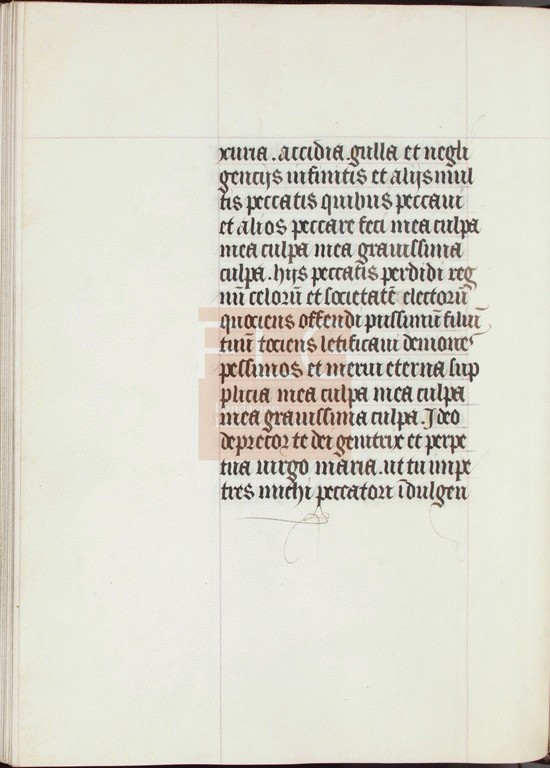 xuria . accidia . gulla et negli
gencijs infinitis et alijs mul
tis peccatis quibus peccaui
et alios peccare feci mea culpa
mea culpa mea grauissima
culpa . hijs peccatis perdidi reg
nū celorū et societatē electorū
quociens offendi pijssimū filiū
tuū tociens letificaui demones
pessimos et merui eterna sup
plicia mea culpa mea culpa
mea grauissima culpa . Ideo
deprecor te dei genitrix et perpe
tua uirgo maria . ut tu impe
tres michi peccatori īdulgen